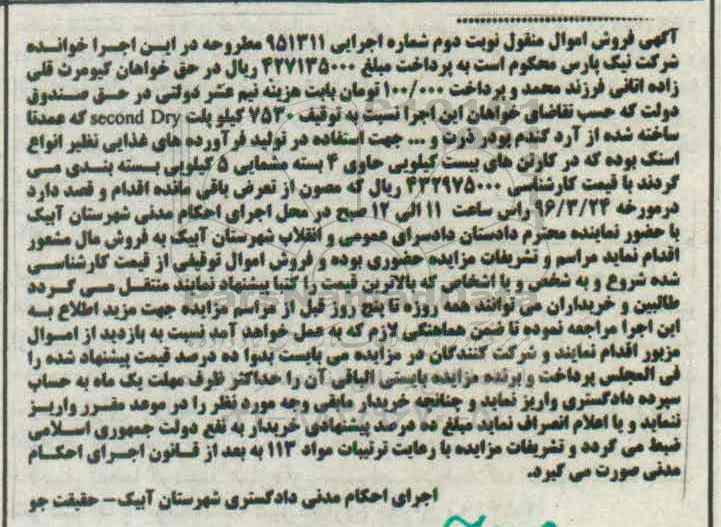 آگهی فروش اموال منقول نوبت دوم شماره اجرایی ۹۵۱۳۱۱ مطروحه در این اجرا خوانده
شرکت نیک پارس محکوم است به پرداخت مبلغ ۴۲۷۱۳۵۰۰۰ ریال در حق خواهان کیومرث قلی
زاده اتانی فرزند محمد و پرداخت ۱۰۰/۰۰۰ تومان بابت هزینه نیم عشر دولتی در حق صندوق
دولت که حسب تقاضای خواهان این اجرا نسبت به توقیف ۷۵۳۰ کیلو پلت second Dry که عمدتا
ساخته شده از آرد گندم پودر ذرت و ... جهت استفاده در تولید فرآورده های غذایی نظیر انواع
اسنک بوده که در کارتن های بیست کیلویی حاوی ۴ بسته مشمایی ۵ کیلویی بسته بندی می
گردند با قیمت کارشناسی ۴۳۲۹۷۵۰۰۰ ریال که مصون از تعرض باقی مانده اقدام و قصد دارد
درمورخه ۹۶/۳/۲۴ راس ساعت ۱۱ الی ۱۲ صبح در محل اجرای احکام مدنی شهرستان آبیک
با حضور نماینده محترم دادستان دادسرای عمومی و انقلاب شهرستان آبیک به فروش مال مشعور
اقدام نماید مراسم و تشریفات مزایده حضوری بوده و فروش اموال توقیفی از قیمت کارشناسی
شده شروع و به شخص و یا اشخاص که بالاترین قیمت را کتبا پیشنهاد نمایند منتقل می گردد
طالبین و خریداران می توانند همه روزه تا پنج روز قبل از مراسم مزایده جهت مزید اطلاع به
این اجرا مراجعه نموده تا ضمن هماهنگی لازم که به عمل خواهد آمد نسبت به بازدید از اموال
مزبور اقدام نمایند و شرکت کنندگان در مزایده می بایست بدوا ده درصد قیمت پیشنهاد شده را
فی المجلس پرداخت و برنده مزایده بایستی الباقی آن را حداکثر ظرف مهلت یک ماه به حساب
سپرده دادگستری واریز نماید و چنانچه خریدار مابقی وجه مورد نظر را در موعد مقرر واریز
ننماید و یا اعلام انصراف نماید مبلغ ده درصد پیشنهادی خریدار به نفع دولت جمهوری اسلامی
ضبط می گردد و تشریفات مزایده با رعایت ترتیبات مواد ۱۱۳ به بعد از قانون اجرای احکام
مدنی صورت می گیرد.
اجرای احکام مدنی دادگستری شهرستان آبیک - حقیقت جو